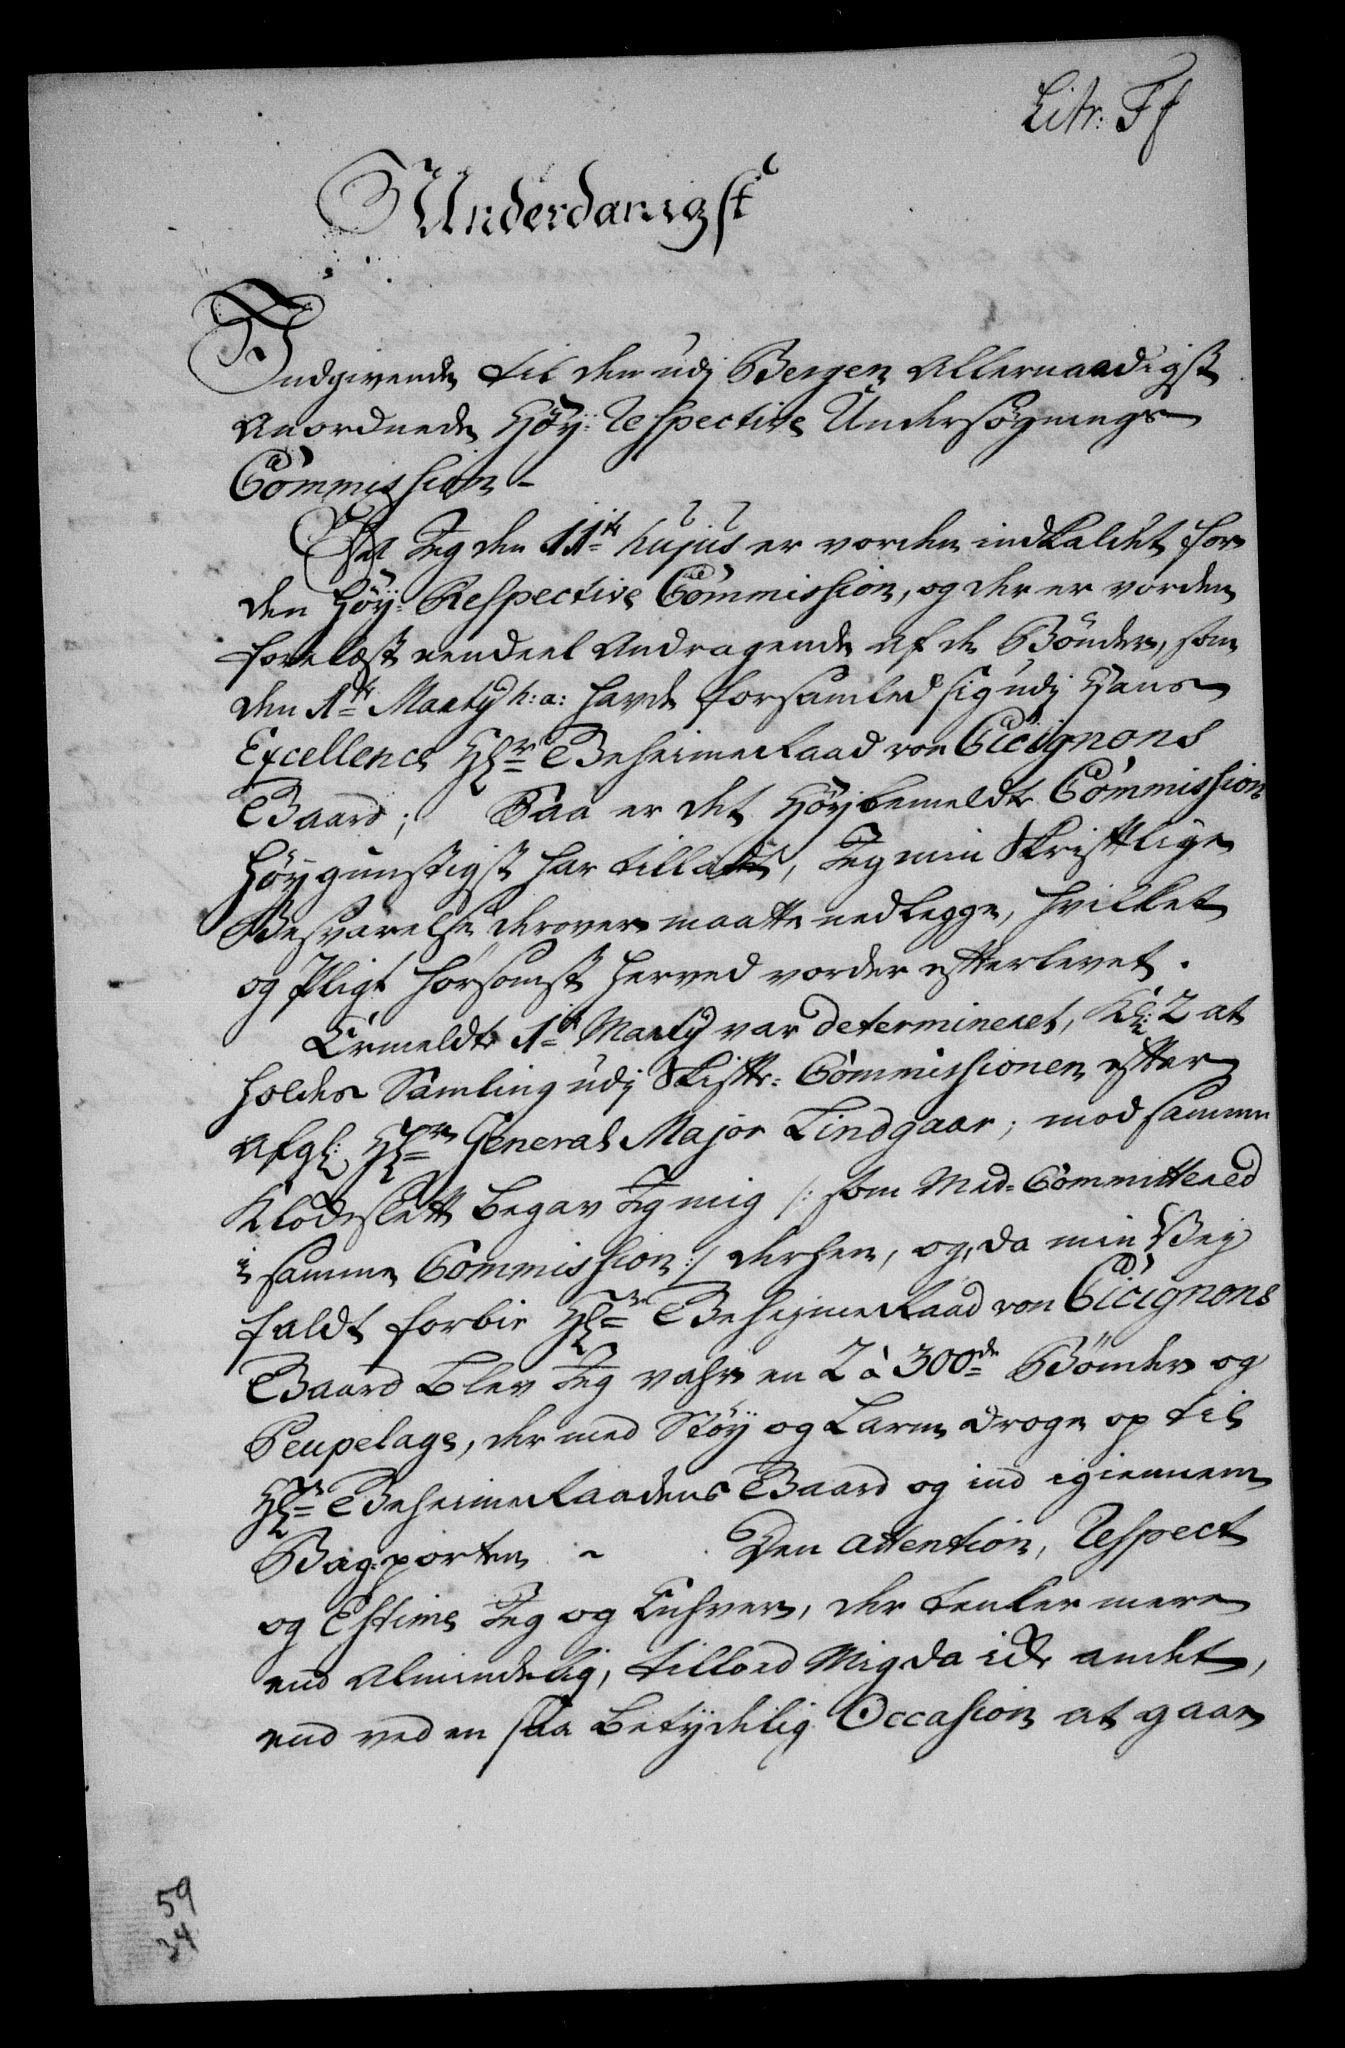 Litr: Ff
Underdanigst
Indgivende til den udj Bergen Allernaadigst
Anordnede Høy-Respective Undersøgnings
Commission-
At Jeg den 11te hujus er vorden indkaldet for
den høy-Respective Commission, og der er vorden
forelæst eendeel Andragende af de Bønder, som
den 1te Martij h: a: havde forsamled sig udj Hans
Excellence Hr Geheime Raad von Cicignons
Gaard; Saa er det Høybemeldte Commission
høygunstigst har tilladt, Jeg min Skriftlige
Besværelse derover maatte nedlegge, hvilket
og Pligt hørsomst herved vorder efterlevet.
Ermeldte 1te Martij var determineret, Kl: 2 at
holdes Samling udj Skifte-Commissionen efter
Afgl: Hr General Major Lindgaar; mod samme
Klokeslett begav Jeg mig /: som Med-Committered
i samme Commission :/ derhen, og, da min Vej
faldt forbie Hr Geheime Raad von Cicignons
Gaard blev Jeg vahr en 2 à 300de Bønder og
Peupelage, der med Støy og Larm droge op til
Hr Geheime Raadens Gaard og ind igiennem
Bagporten - Den attention, Respect
og Estime Jeg og Enhver, der tenker mere
end Almindelig, tillod Mig da icke andet,
end ved en saa betydelig Occasion at gaae
59
34